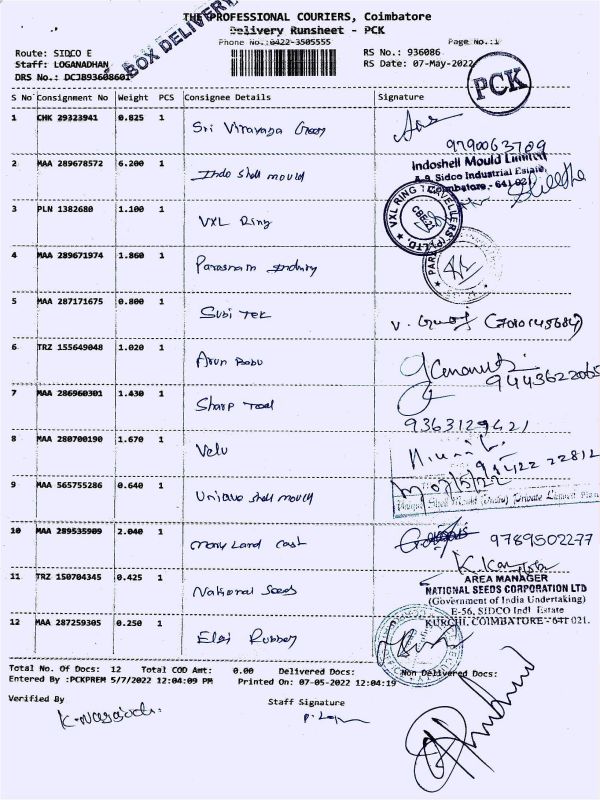 THE PROFESSIONAL COURIERS, Coimbatore
BOX DELIVERY
Delivery Runsheet - PCK
Phone No.:0422-3505555 Page No.:1
Route: SIDCO E RS No.: 936086
Staff: LOGANADHAN RS Date: 07-May-2022
DRS No.: DCJ893608601
PCK
S No Consignment No Weight PCS Consignee Details Signature
1 CHK 29323941 0.825 1 Sri Vinayaga
9790063709
2 MAA 289678572 6.200 1 Indo Shell mould
Indoshell Mould Limited
A-9 Sidco Industrial Estate,
Coimbatore - 641 021
3 PLN 1382680 1.100 1 VXL Ring
VXL RING TRAVELLERS (P) LTD.
CBE-21
4 MAA 289671974 1.860 1
5 MAA 287171675 0.800 1 Subi Tek
6 TRZ 155649048 1.020 1 Arun Babu
9443622065
7 MAA 286960301 1.430 1 Sharp Tool
9363129421
8 MAA 280700190 1.670 1 Velu
94422 22812
9 MAA 565755286 0.640 1 Unique shell mould
Unique Shell Mould (India) Private Limited
10 MAA 289535909 2.040 1 cast
9789502277
11 TRZ 150704345 0.425 1 National Seeds
AREA MANAGER
NATIONAL SEEDS CORPORATION LTD
(Government of India Undertaking)
E-56, SIDCO Indl. Estate
KURCHI, COIMBATORE - 641 021.
12 MAA 287259305 0.250 1
Total No. Of Docs: 12 Total COD Amt: 0.00 Delivered Docs: Non Delivered Docs:
Entered By :PCKPREM 5/7/2022 12:04:09 PM Printed On: 07-05-2022 12:04:19
Verified By Staff Signature